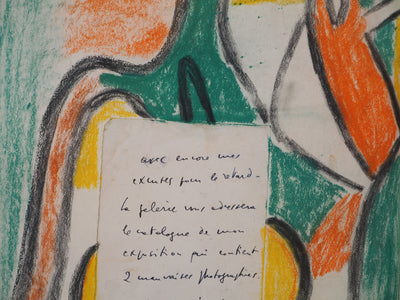 avec encore mes
excuses pour le retard -
La galerie vous adressera
le catalogue de mon
exposition qui contient
2 mauvaises photographies